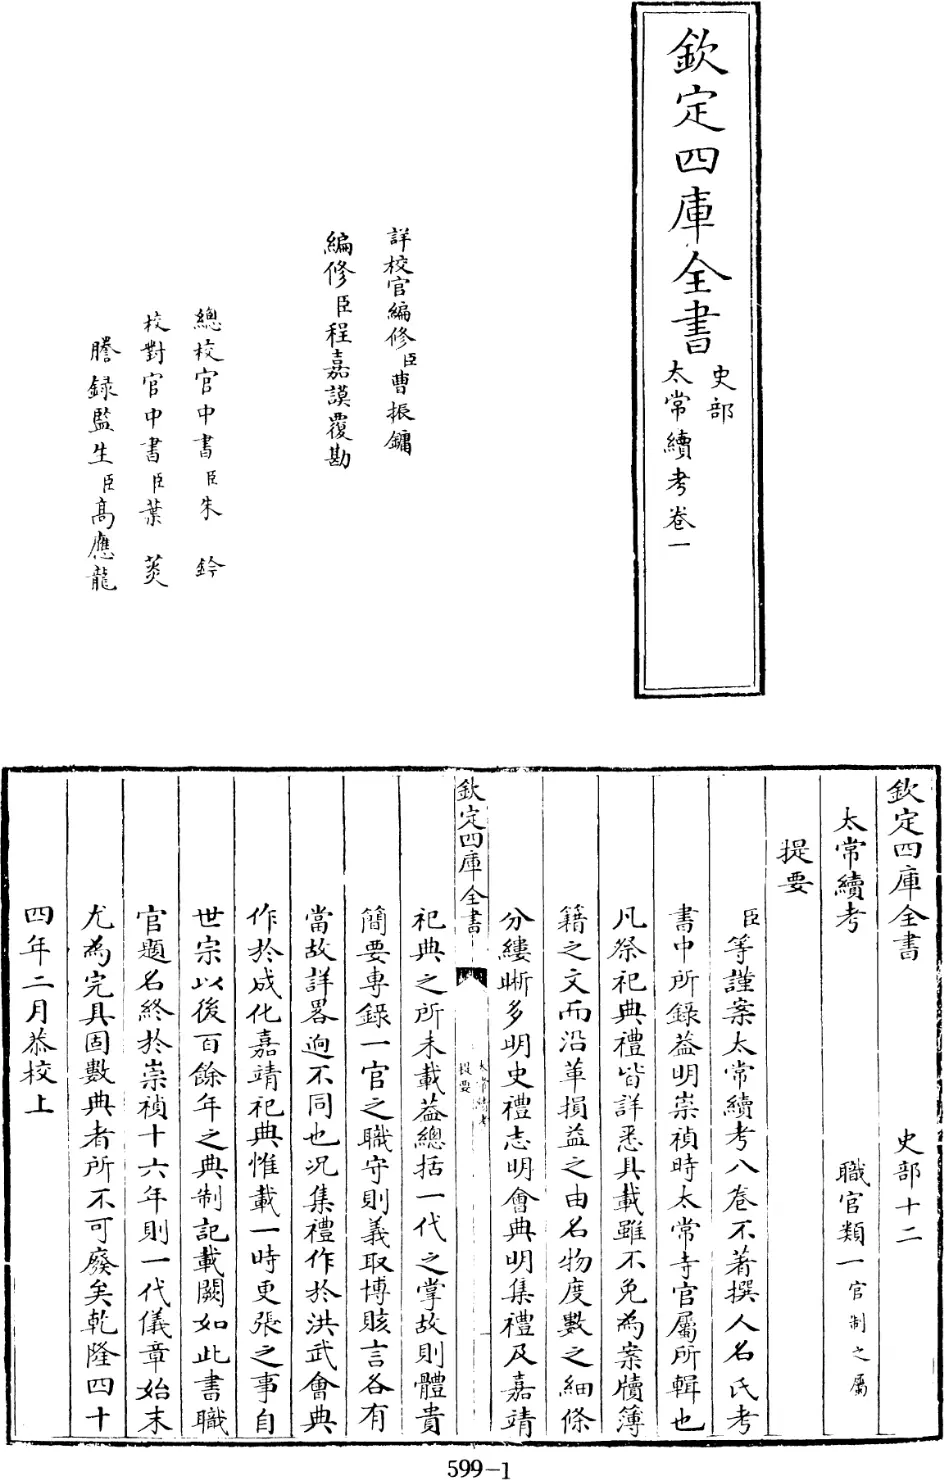 欽定四庫全書
史部
太常續考卷一
詳校官編修臣曹振鏞
編修臣程嘉謨覆勘
總校官中書臣朱鈐
校對官中書臣葉菼
謄録監生臣高應龍
欽定四庫全書 史部十二
太常續考 職官類一官制之屬
提要
臣等謹案太常續考八卷不著撰人名氏考
書中所錄蓋明崇禎時太常寺官屬所輯也
凡祭祀典禮皆詳悉具載雖不免為案牘簿
籍之文而沿革損益之由名物度數之細條
分縷晰多明史禮志明會典明集禮及嘉靖
欽定四庫全書
太常續考
提要
祀典之所未載葢總括一代之掌故則體貴
簡要專錄一官之職守則義取博賅言各有
當故詳畧逈不同也况集禮作於洪武會典
作於成化嘉靖祀典惟載一時更張之事自
世宗以後百餘年之典制記載闕如此書職
官題名終於崇禎十六年則一代儀章始末
尤為完具固數典者所不可廢矣乾隆四十
四年二月恭校上
599-1